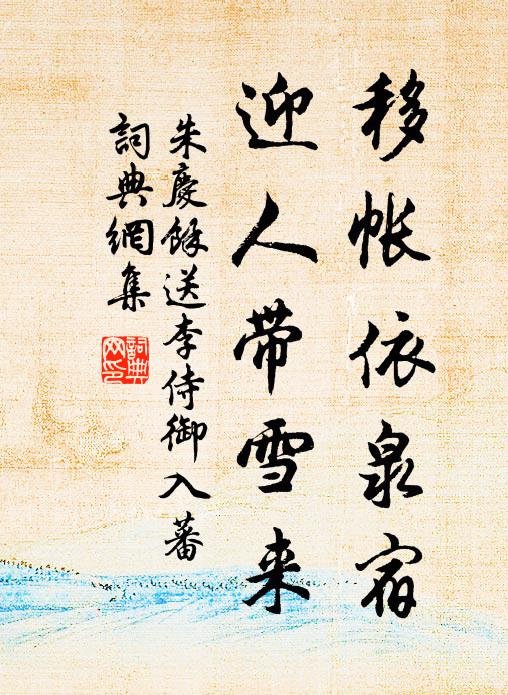 移帐依泉宿
迎人带雪来
朱慶餘送李侍御入蕃
詞典網集
詞典网印